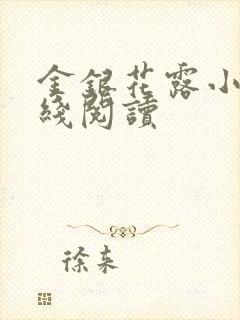 金銀花露小
綫閱讀
徐来